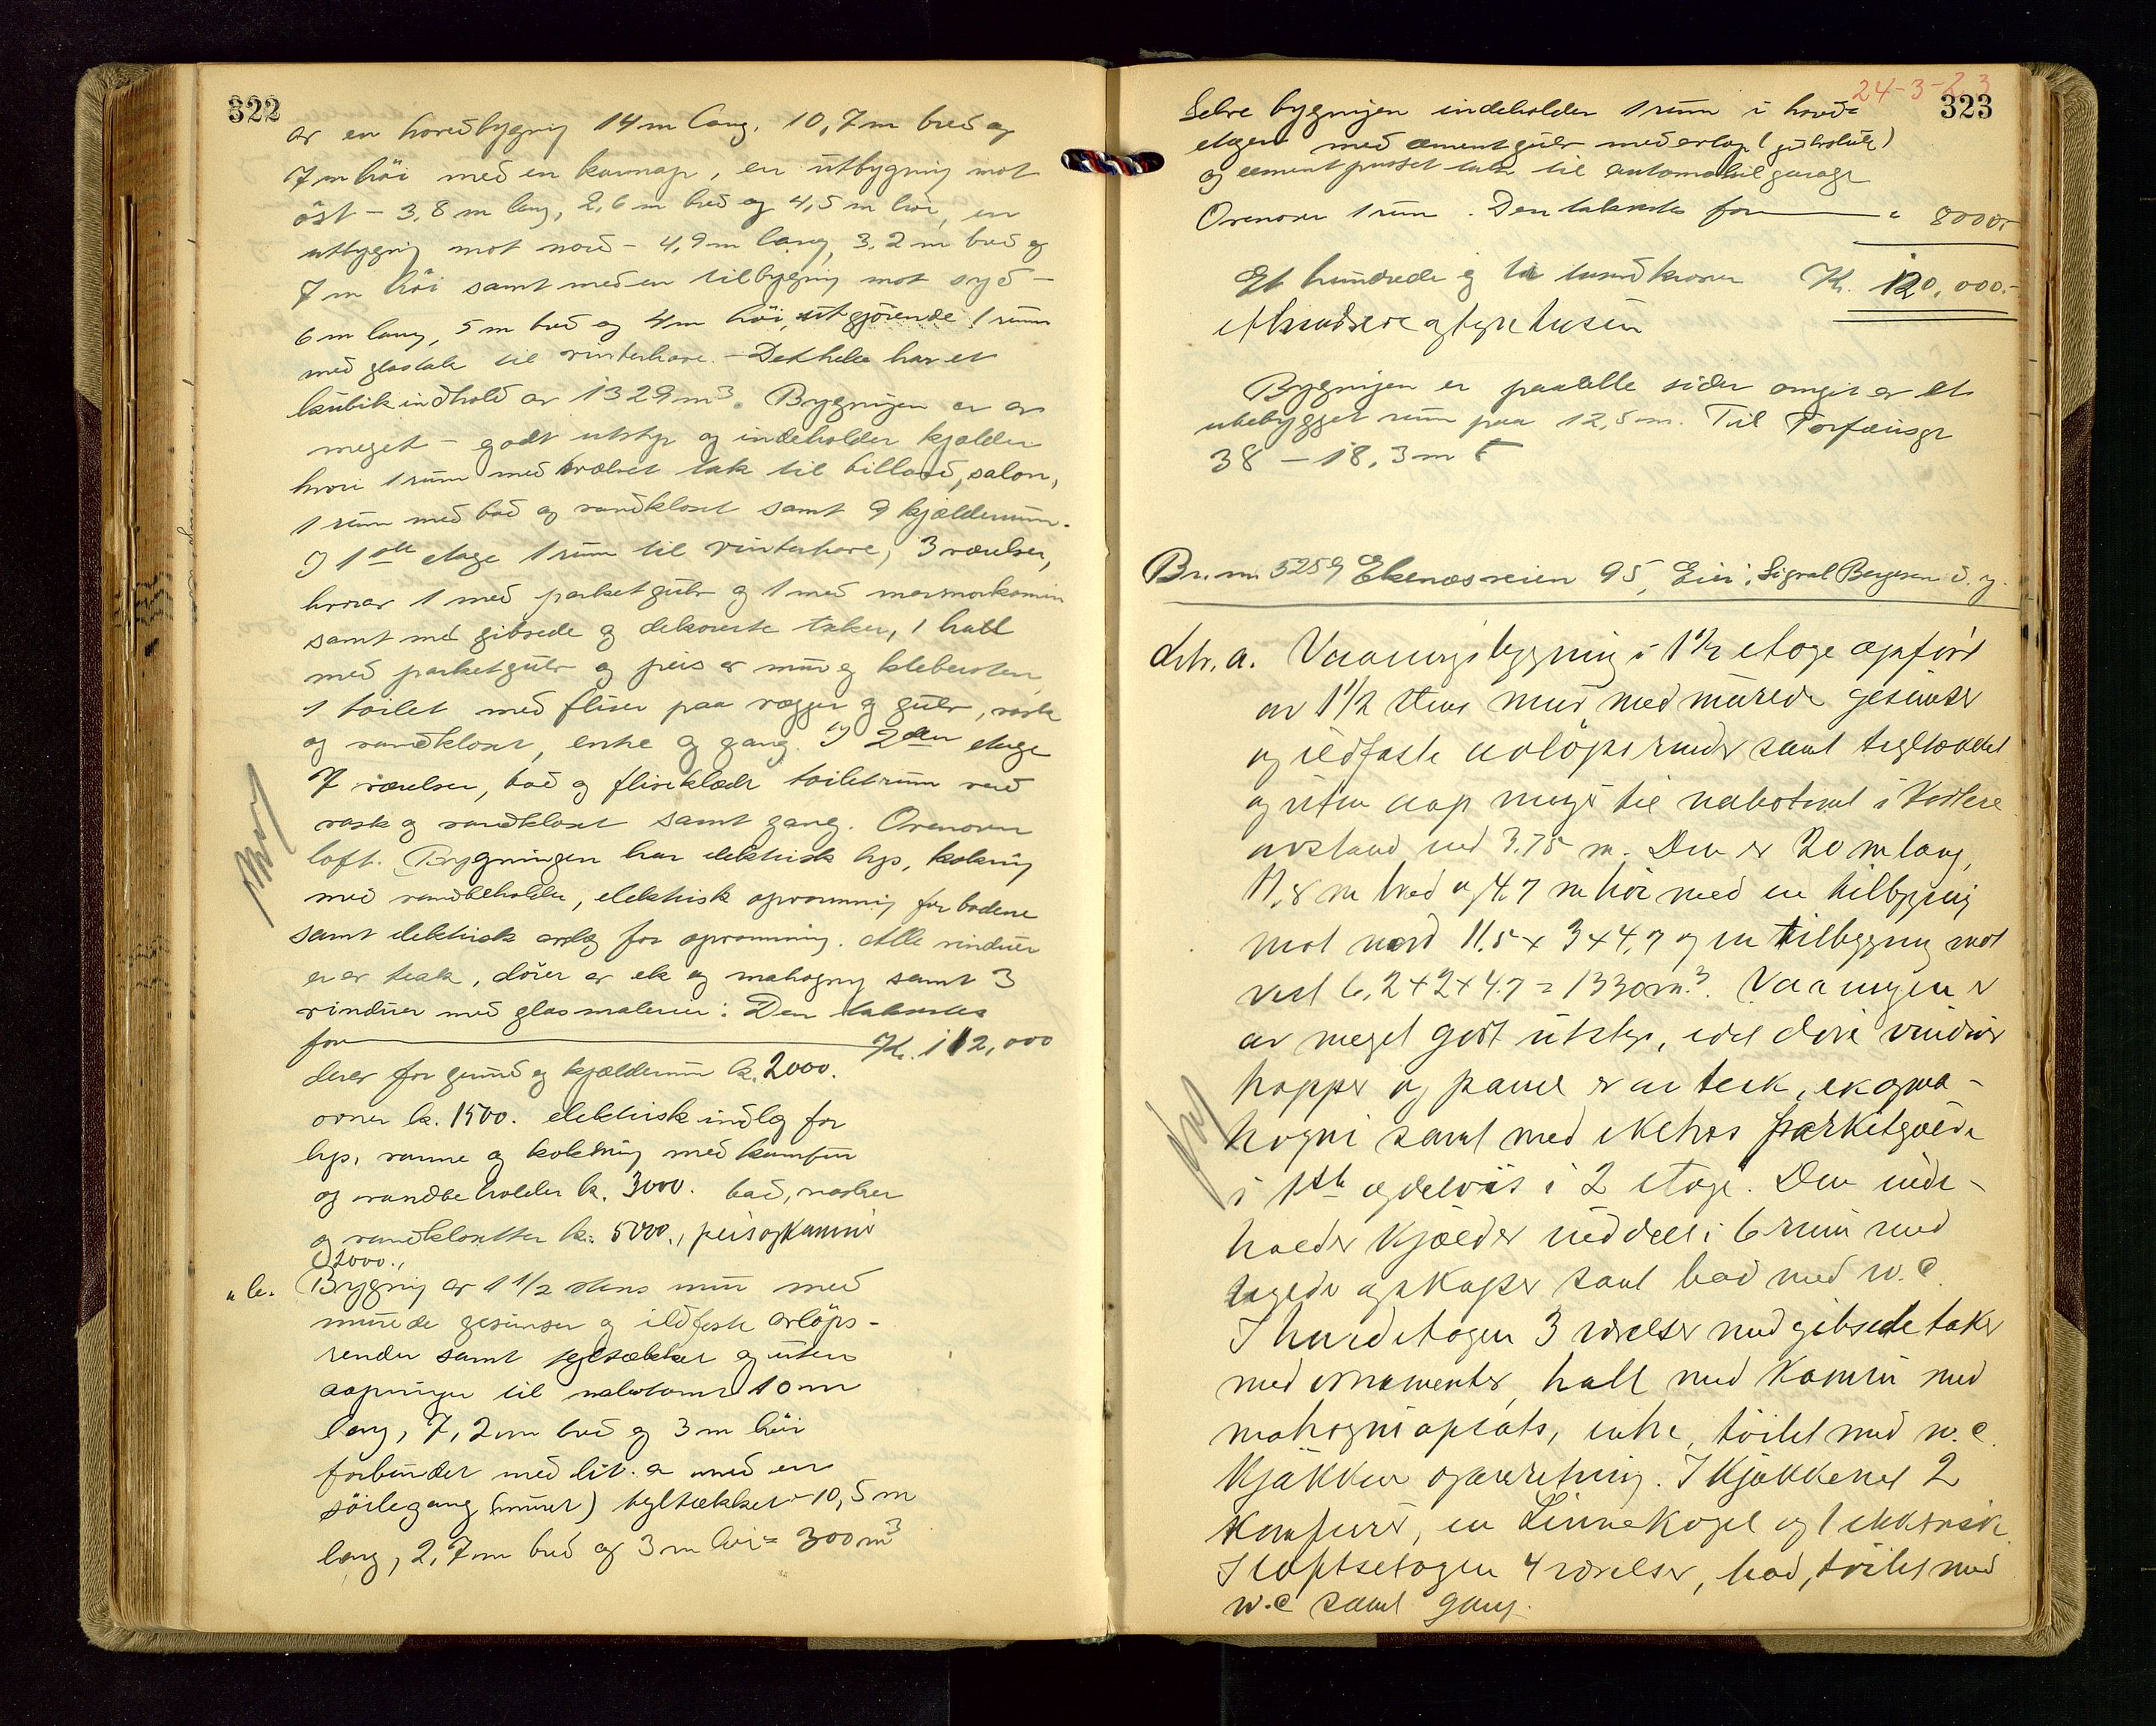 322
av en hovedbygning 14 m lang, 10,7 m bred og
7 m höi med en karnap, en utbygning mot
öst - 3,8 m lang, 2,6 m bred og 4,5 m höi, en
utbygning mot nord - 4,9 m lang, 3,2 m bred og
7 m höi samt med en tilbygning mot syd -
6 m lang, 5 m bred og 4 m höi, utgjörende 1 rum
med glastak til vinterhave. - Det hele har et
kubikindhold av 1329 m³. Bygningen er av
meget - godt utstyr og indeholder kjælder
hvori 1 rum med tak til billard, salon,
1 rum med bad og vandkloset samt 9 kjælderrum.
I 1ste etage 1 rum til vinterhave, 3 værelser,
hvorav 1 med parketgulv og 1 med marmorkamin
samt med gibsede og dekorerte taker, 1 hall
med parketgulv og peis av mur og kleberstein,
1 toilet med fliser paa vægger og gulv, vask
og vandkloset, entre og gang. I 2den etage
7 værelser, bad og fliseklædt toiletrum med
vask og vandkloset samt gang. Ovenover
loft. Bygningen har elektrisk lys, kokning
med vandbeholder, elektrisk opvarmning for badene
samt elektrisk anlæg for opvarmning. Alle vinduer
er av teak, dörer av ek og mahogny samt 3
vinduer med glasmalerier: Den taksertes
for Kr. 112,000
derav for grund og kjælderrum k. 2000.
ovner k. 1500. elektrisk indlæg for
lys, varme og kokning med komfur
og vandbeholder k. 3000. bad, vasker
og vandklosetter k. 5000., peis og Kamin
2000.,
" b. Bygning av 1 1/2 stens mur med
murede gesimser og ildfaste avlöps-
render samt tegltækket og uten
aapninger til nabotomt 10 m
lang, 7,2 m bred og 3 m höi
forbundet med lit. a med en
söilegang (muret) tegltækket - 10,5 m
lang, 2,7 m bred og 3 m höi = 300 m³
24-3-23
323
Selve bygningen indeholder 1 rum i hoved-
etagen med cementgulv med avlöp (gulvsluk)
og cementpusset tak til automobilgarage
Ovenover 1 rum. Den taksertes for " 8000.-
Et hundrede og ti tusend kroner Kr. 120,000.-
ethundrede og tyve tusen
Bygningen er paa alle sider omgit av et
ubebygget rum paa 12,5 m. Til
38 - 18,3 m
Br. nr. 5259 Ekenæsveien 95, Eier: Sigval Bergesen d. y.
Litr. a. Vaaningsbygning i 1 1/2 etage opfört
av 1 1/2 stens mur med murede gesimser
og ildfaste avlöpsrender samt tegltækket
og uten aapninger til nabotomt i kortere
avstand end 3.75 m. Den er 20 m lang,
11,8 m bred og 4.7 m höi med en tilbygning
mot nord 11.5 x 3 x 4,7 og en tilbygning mot
vest 6,2 x 2 x 4.7 = 1330 m³. Vaaningen er
av meget godt utstyr, idet döre vinduer
trapper og panel er av teak, ek og ma-
hogni samt med parketgulve
i 1ste og delvis i 2 etage. Den inde-
holder Kjælder inddelt i 6 rum med
og skaper samt bad med w.c.
I hovedetagen 3 værelser med gibsede taker
med ornamenter, hall med Kamin med
mahogniopsats, entre, toilet med w.c.
Kjökken og anretning. I Kjökkenet 2
Komfurer, en og 1 elektrisk.
I loftsetagen 4 værelser, bad, toilet med
w.c samt gang.